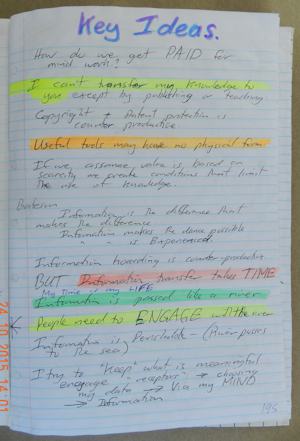 Key Ideas.
How do we get PAID for
mind work?
I can't transfer my knowledge to
you except by publishing or teaching
Copyright + Patent protection is
counter productive
Useful tools may have no physical form
If we assume value is based on
scarcity we create conditions that limit
the use of knowledge.
Bateson
Information is the difference that
makes the difference
Information makes the dance possible
" " is Experienced.
Information hoarding is counter-productive
BUT Information transfer takes TIME
My Time my LIFE
Information is passed like a river
People need to ENGAGE with the river
Information is Perishable - (River passes
to the sea)
I try to "Keep" what is meaningful
engage receptors → choosing
my data → Via my MIND
→ Information
195
24.10.2015 14:01